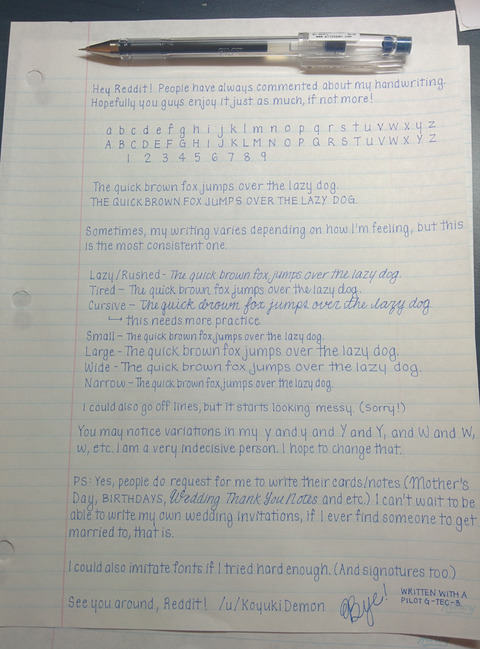 PILOT
Hey Reddit! People have always commented about my handwriting.
Hopefully you guys enjoy it just as much, if not more!
a b c d e f g h i j k l m n o p q r s t u v w x y z
A B C D E F G H I J K L M N O P Q R S T U V W X Y Z
1 2 3 4 5 6 7 8 9
The quick brown fox jumps over the lazy dog.
THE QUICK BROWN FOX JUMPS OVER THE LAZY DOG.
Sometimes, my writing varies depending on how I'm feeling, but this
is the most consistent one.
Lazy/Rushed - The quick brown fox jumps over the lazy dog.
Tired – The quick brown fox jumps over the lazy dog.
Cursive – The quick brown fox jumps over the lazy dog.
↳ this needs more practice
Small – The quick brown fox jumps over the lazy dog.
Large - The quick brown fox jumps over the lazy dog.
Wide - The quick brown fox jumps over the lazy dog.
Narrow - The quick brown fox jumps over the lazy dog.
I could also go off lines, but it starts looking messy. (Sorry!)
You may notice variations in my y and y and Y and Y, and W and W,
w, etc. I am a very indecisive person. I hope to change that.
PS: Yes, people do request for me to write their cards/notes (Mother's
Day, BIRTHDAYS, Wedding Thank You Notes and etc.) I can't wait to be
able to write my own wedding invitations, if I ever find someone to get
married to, that is.
I could also imitate fonts if I tried hard enough. (And signatures too.)
See you around, Reddit! /u/KoyukiDemon Bye!
WRITTEN WITH A
PILOT G-TEC-3.